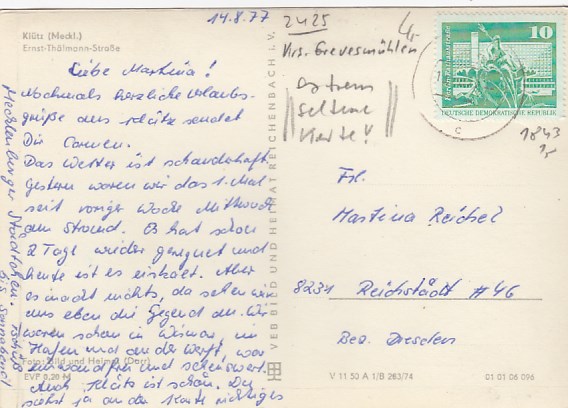 14.8.77
Klütz (Meckl.)
Ernst-Thälmann-Straße
Liebe Martina!
Nochmals herzliche Urlaubs-
grüße aus Klütz sendet
Dir Carmen.
Das Wetter ist schauderhaft.
Gestern waren wir das 1. Mal
seit voriger Woche Mittwoch
am Strand. Es hat schon
2 Tage wieder geregnet und
heute ist es eiskalt. Aber
es macht nichts, da sehen wir
uns eben die Gegend an. Wir
waren schon in Wismar, im
Hafen und an der Werft, war
einwandfrei und sehenswert.
Auch Klütz ist schön. Du
siehst ja an der Karte richtiges
Mecklenburger Städtchen. Tschüß
bis Sonnabend!
Foto: Bild und Heimat (Darr)
EVP 0,20 M
VEB BILD UND HEIMAT REICHENBACH i. V.
2425
Krs. Grevesmühlen
extrem
seltene
Karte!
4,-
10
DEUTSCHE DEMOKRATISCHE REPUBLIK
1843
1,-
Frl.
Martina Reichel
8231 Reichstädt #46
Bez. Dresden
V 11 53 A 1/B 263/74
01 01 06 096